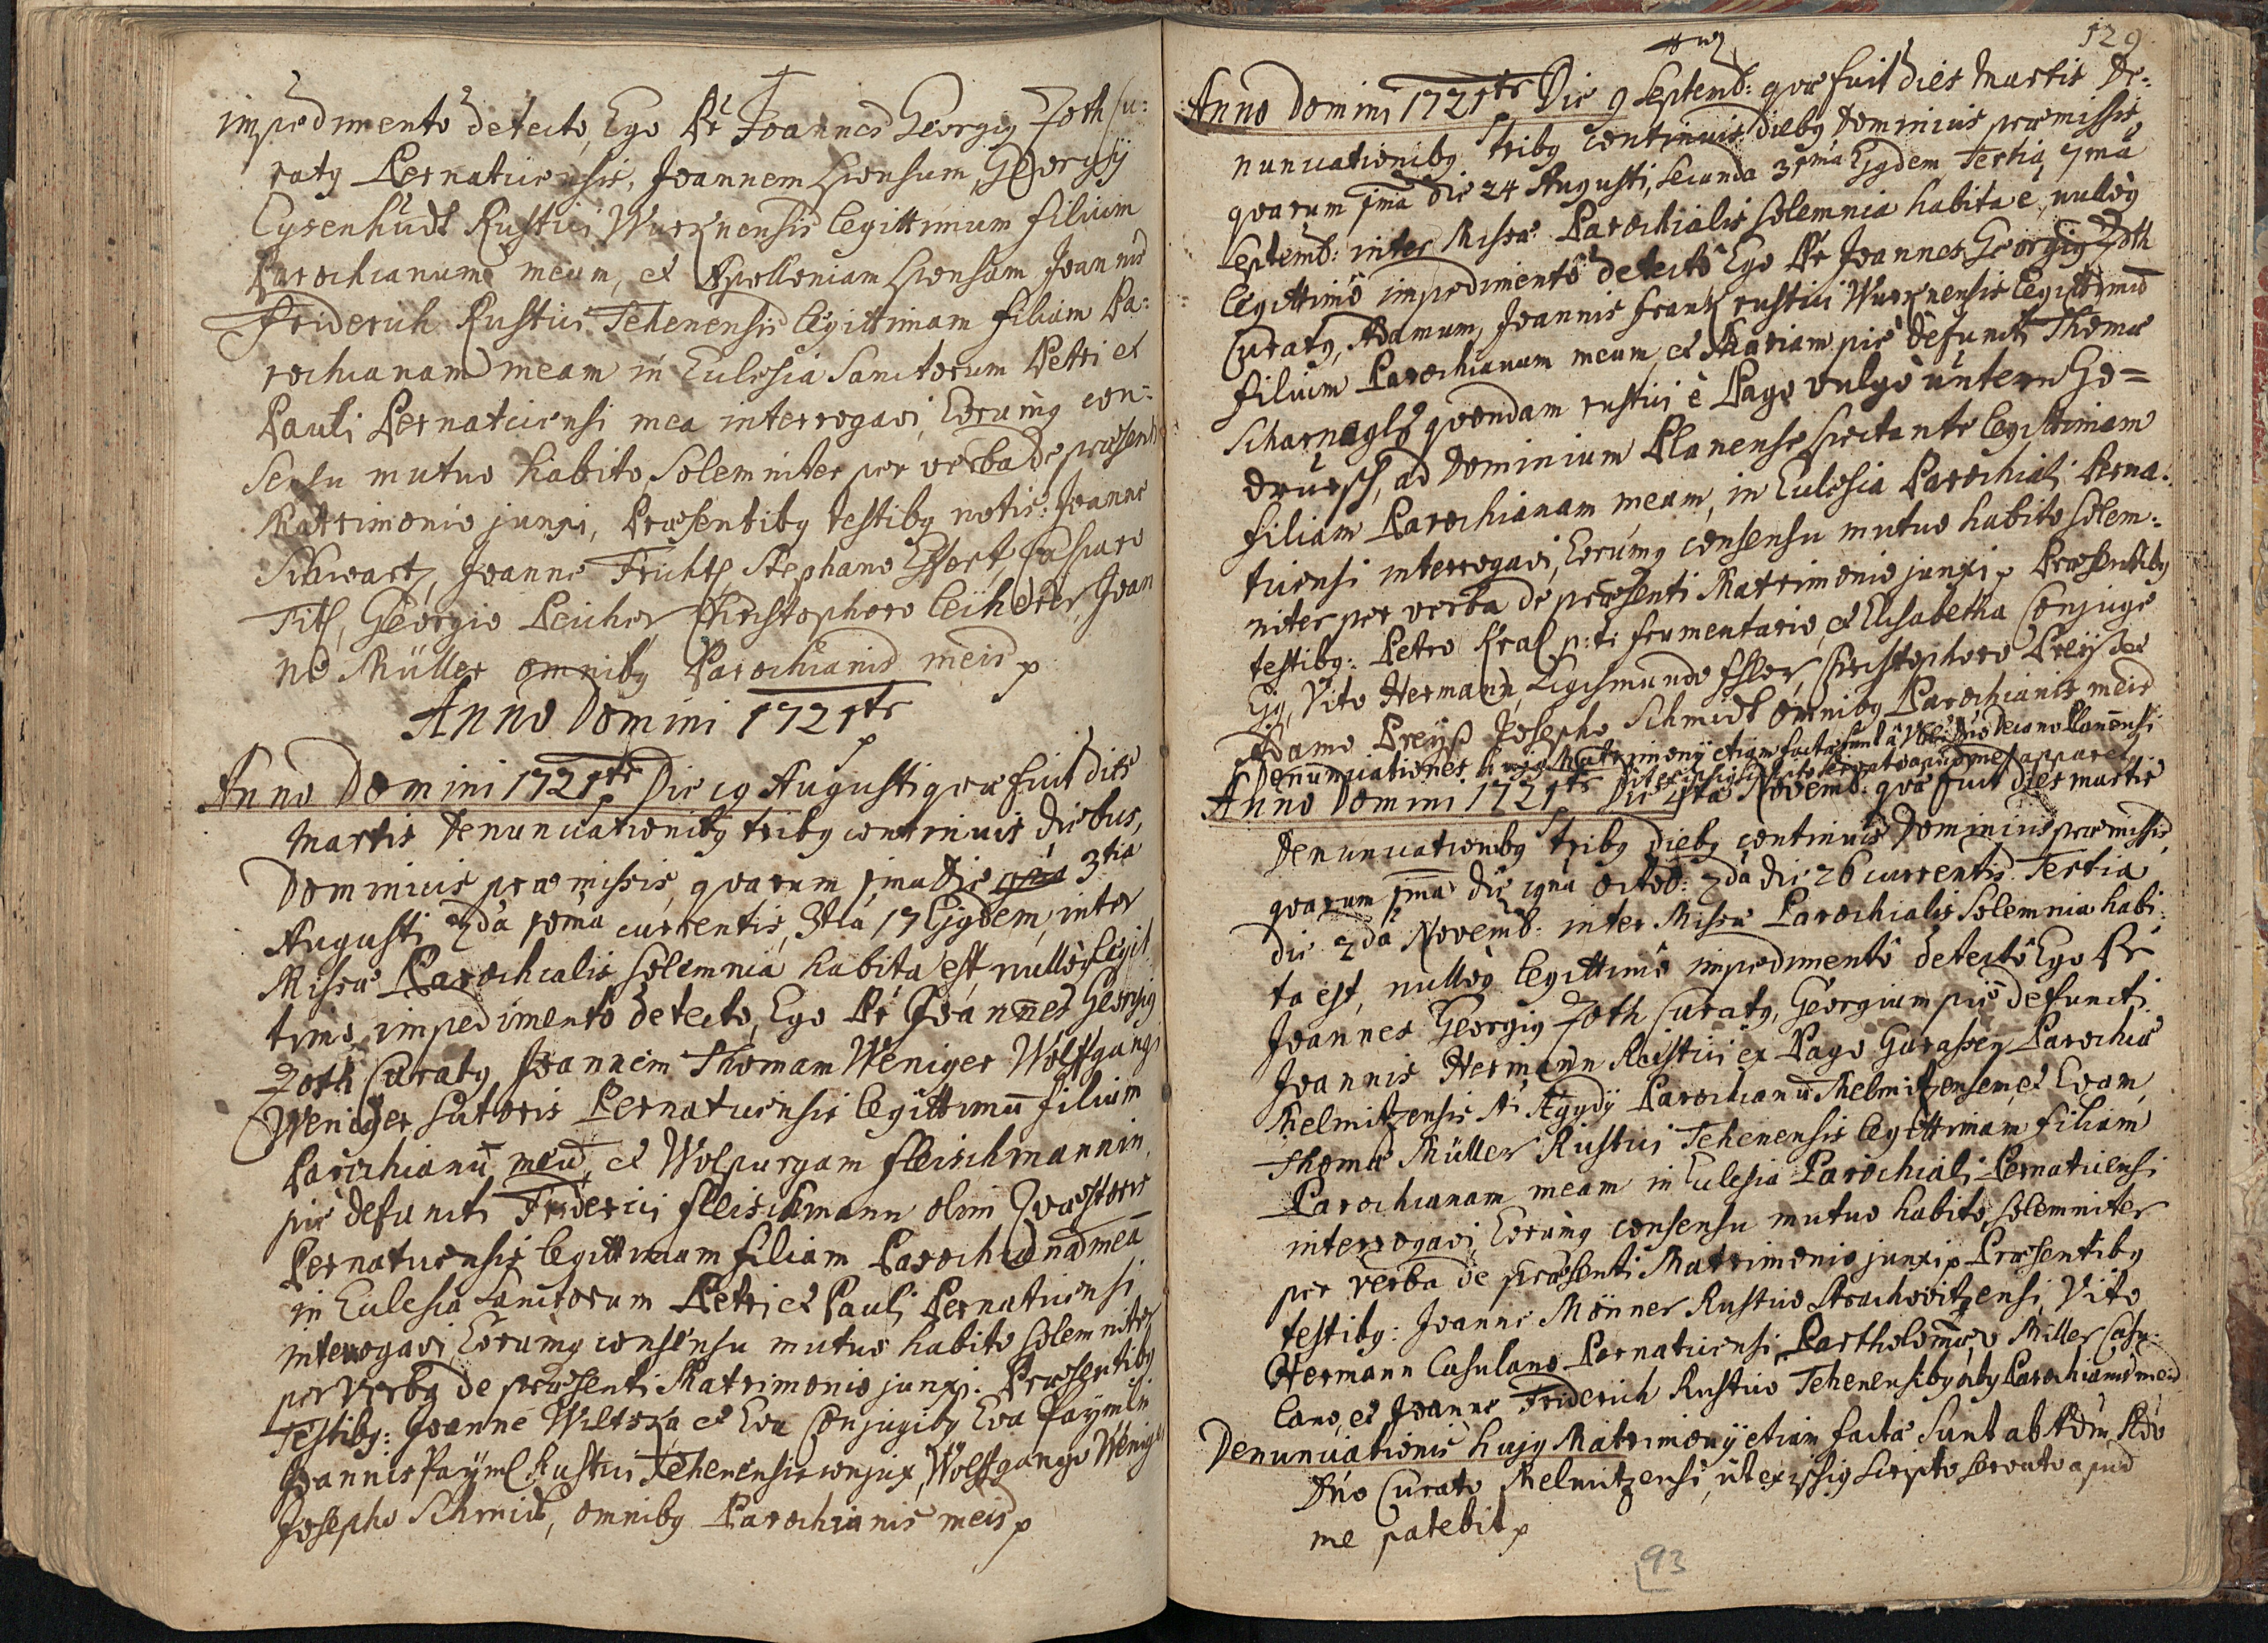 impedimentô detectô, Ego Pr Joannes Georgig Zoth Cu:
ratg Pernaticensis, Joannem sponsum, Georgÿ
Eysenhüdt Rustici Wurknensis legittimum filium
Parochianum meum, et Apolloniam sponsam Joannis
Friderich Rustici Tehenensis legittimam filiam Pa:
rochianam meam in Eulesia Sanctorum Petri et
Pauli Pernaticensi mea interrogavi, Eorumq con:
sensu mutuo habito, Solemniter per verba de præsenti
Matrimonio junxi, Præsentibg testibg notis: Joanne
Schwartz, Joanne Frichtl, Stephano Effert, Casparo
Titl, Georgio Peicher, Christophoro Leÿherer, Joan
ne Müller omnibg Parochianis meis p
Anno Domini 1721te
Anno Domini 1721te Die 19 Augusti quæ fuit dies
Martis Denunciationibg tribg continuis diebus,
Dominicis præmissis, quarum 1ma Die 3tia
Augusti 2da 10ma currentis, 3tia 17 Ejgdem, inter
Missæ Parochialis solemnia habita est, nullôq legit
timo impedimentô detecto, Ego Pr Joannes Georgig
Zoth Curatg Joannem Thomam Weniger Wolffgangi
Weniger sutoris Pernaticensis legittimū filium
Parochianū meū, et Wolpurgam fleischmannin,
pie defuncti Friderici fleischmann olim Quæstoris
Pernaticensis legittimam filiam Parochianā meā
in Eulesia Sanctorum Petri et Pauli Pernaticensi
interrogavi Eorumq consensu mutuo habito solemniter
per verba de præsenti Matrimonio junxi. Præsentibg
Testibg: Joanne Wiltska et Eva Conjugibg Eva Paÿmlin
Joannis Paÿml Rustici Tehenensis conjux, Wolffgango Weniger
Josepho Schmidt, omnibg Parochianis meis p
129
Anno Domini 1721te Die 9 Septemb: quæ fuit dies Martis De:
nunciationibg tribg continuis diebg Dominicis præmissis
quarum 1ma Die 24 Augusti, secunda 31ma Ejgdem Tertia 7ma
Septemb: inter Missæ Parochialis solemnia habita ē, nullôq
legittimô impedimentô detectô Ego Pr Joannes Georgig Zoth
Curatg, Adamum, Joannis frank rustici Wurknensis legittimū
filium Parochianum meum, et Mariam pie defuncti Thomæ
Scharnagls quondam rustici è Pago vulgò üntern Go=
drüsch, ad Dominium Planense spectante legittimam
filiam Parochianam meam, in Eulesia Parochiali Perna:
ticensi interrogavi, Eorumq consensu mutuo habito solem:
niter per verba de præsenti Matrimonio junxi p Præsentibg
testibg: Petro Kral p: t: frumentario, et Elisabetha Conjuge
Ejg, Vito Hermann, Sigismundo Esler, Christophoro Preÿsser
Adamo Preÿß Josepho Schmidt omnibg Parochianis meis
Denunciationes hujg Matrimonÿ etiam factæ sunt à Decano Planensi
apud me apparet
Anno Domini 1721te Die 4ta Novemb: quæ fuit dies martis
Denunciationibg tribg diebg continuis Dominicis præmissis,
quarum 1ma die 19na Octob: 2da die 26 currentis Tertia
die 2da Novemb: inter Missæ Parochialis Solemnia habi:
ta est, nullôq legittimô impedimentô detectô Ego Pr
Joannes Georgig Zoth Curatg, Georgium pie defuncti
Joannis Hermann Rustici ex Pago Gurassen Parochiæ
Thelmitzensis Ægydÿ Parochianū Thelmitzensem, et Evam
Thomæ Müller Rustici Tehenensis legittimam filiam
Parochianam meam in Eulesia Parochiali Pernaticensi
interrogavi, Eorumq consensu mutuo habito, solemniter
per verba de præsenti Matrimonio junxi p Præsentibg
testibg: Joanne Mönner Rustico Strachovitzensi, Vito
Hermann Casulano Pernaticensi, Bartholomæo Miller Casu:
lano, et Joanne Friderich Rustico Tehenensibg Parochianis meis
Denunciationes hujg Matrimonÿ etiam factæ Sunt ab
Dno Curato Thelmitzensi, üt ex ipsig scripto servato apud
me patebit p
93